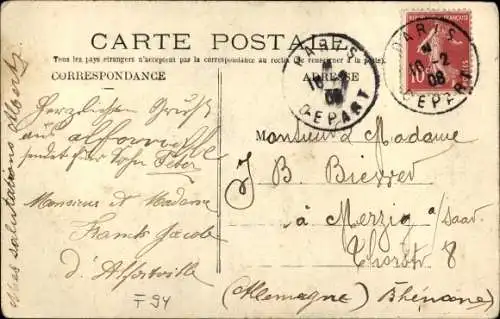 CARTE POSTALE
Tous les pays étrangers n'acceptent pas la correspondance au recto (Se renseigner à la poste).
CORRESPONDANCE
ADRESSE
Herzlichen Gruß
aus
sendet
Monsieur et Madame
Franck Jacob
d'Alfortville
F 94
Mes salutations Albert
PARIS
16
08
DEPART
PARIS
16-2
08
DEPART
10
Monsieur et Madame
J. B.
à Merzig a/Saar
8
(Allemagne) Rhénane)